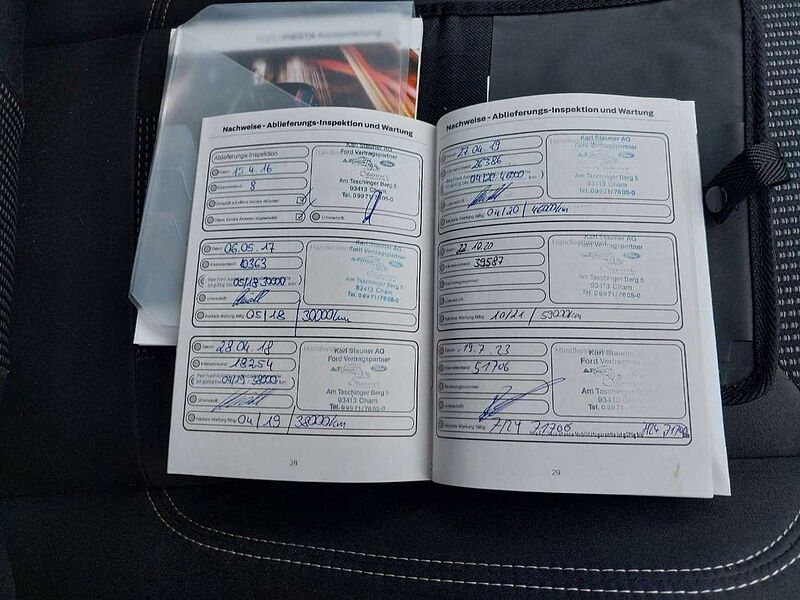 FIESTA
Nachweise - Ablieferungs-Inspektion und Wartung
Ablieferungs-Inspektion
Datum 15.4.16
Kilometerstand 8
Unterschrift
Karl Stauner AG
Ford Vertragspartner
Am Taschinger Berg 5
93413 Cham
Tel. 09971/7605-0
Datum 06.05.17
Kilometerstand 10363
05/18 30000 km
Unterschrift
Nächste Wartung fällig 05/18 30000km
Ford Vertragspartner
Am Taschinger Berg 5
93413 Cham
Tel. 09971/7605-0
Datum 28 04.18
Kilometerstand 18254
04/19 38000 km
Unterschrift
Nächste Wartung fällig 04/19 38000km
Karl Stauner AG
Ford Vertragspartner
Am Taschinger Berg 5
93413 Cham
Tel. 09971/7605-0
28
Nachweise - Ablieferungs-Inspektion und Wartung
27 04.19
26386
04/20 46000
Nächste Wartung fällig 04/20 46000km
Karl Stauner AG
Ford Vertragspartner
Am Taschinger Berg 5
93413 Cham
Tel. 09971/7605-0
Datum 22.10.20
Kilometerstand 39587
Nächste Wartung fällig 10/21 59000km
Karl Stauner AG
Ford Vertragspartner
Am Taschinger Berg 5
93413 Cham
Tel. 09971/7605-0
Datum 19.7.23
Kilometerstand 51706
Unterschrift
Nächste Wartung fällig 7/24 71706
Karl Stauner AG
Ford Vertragspartner
Am Taschinger Berg 5
93413 Cham
Tel. 09971/7605-0
29